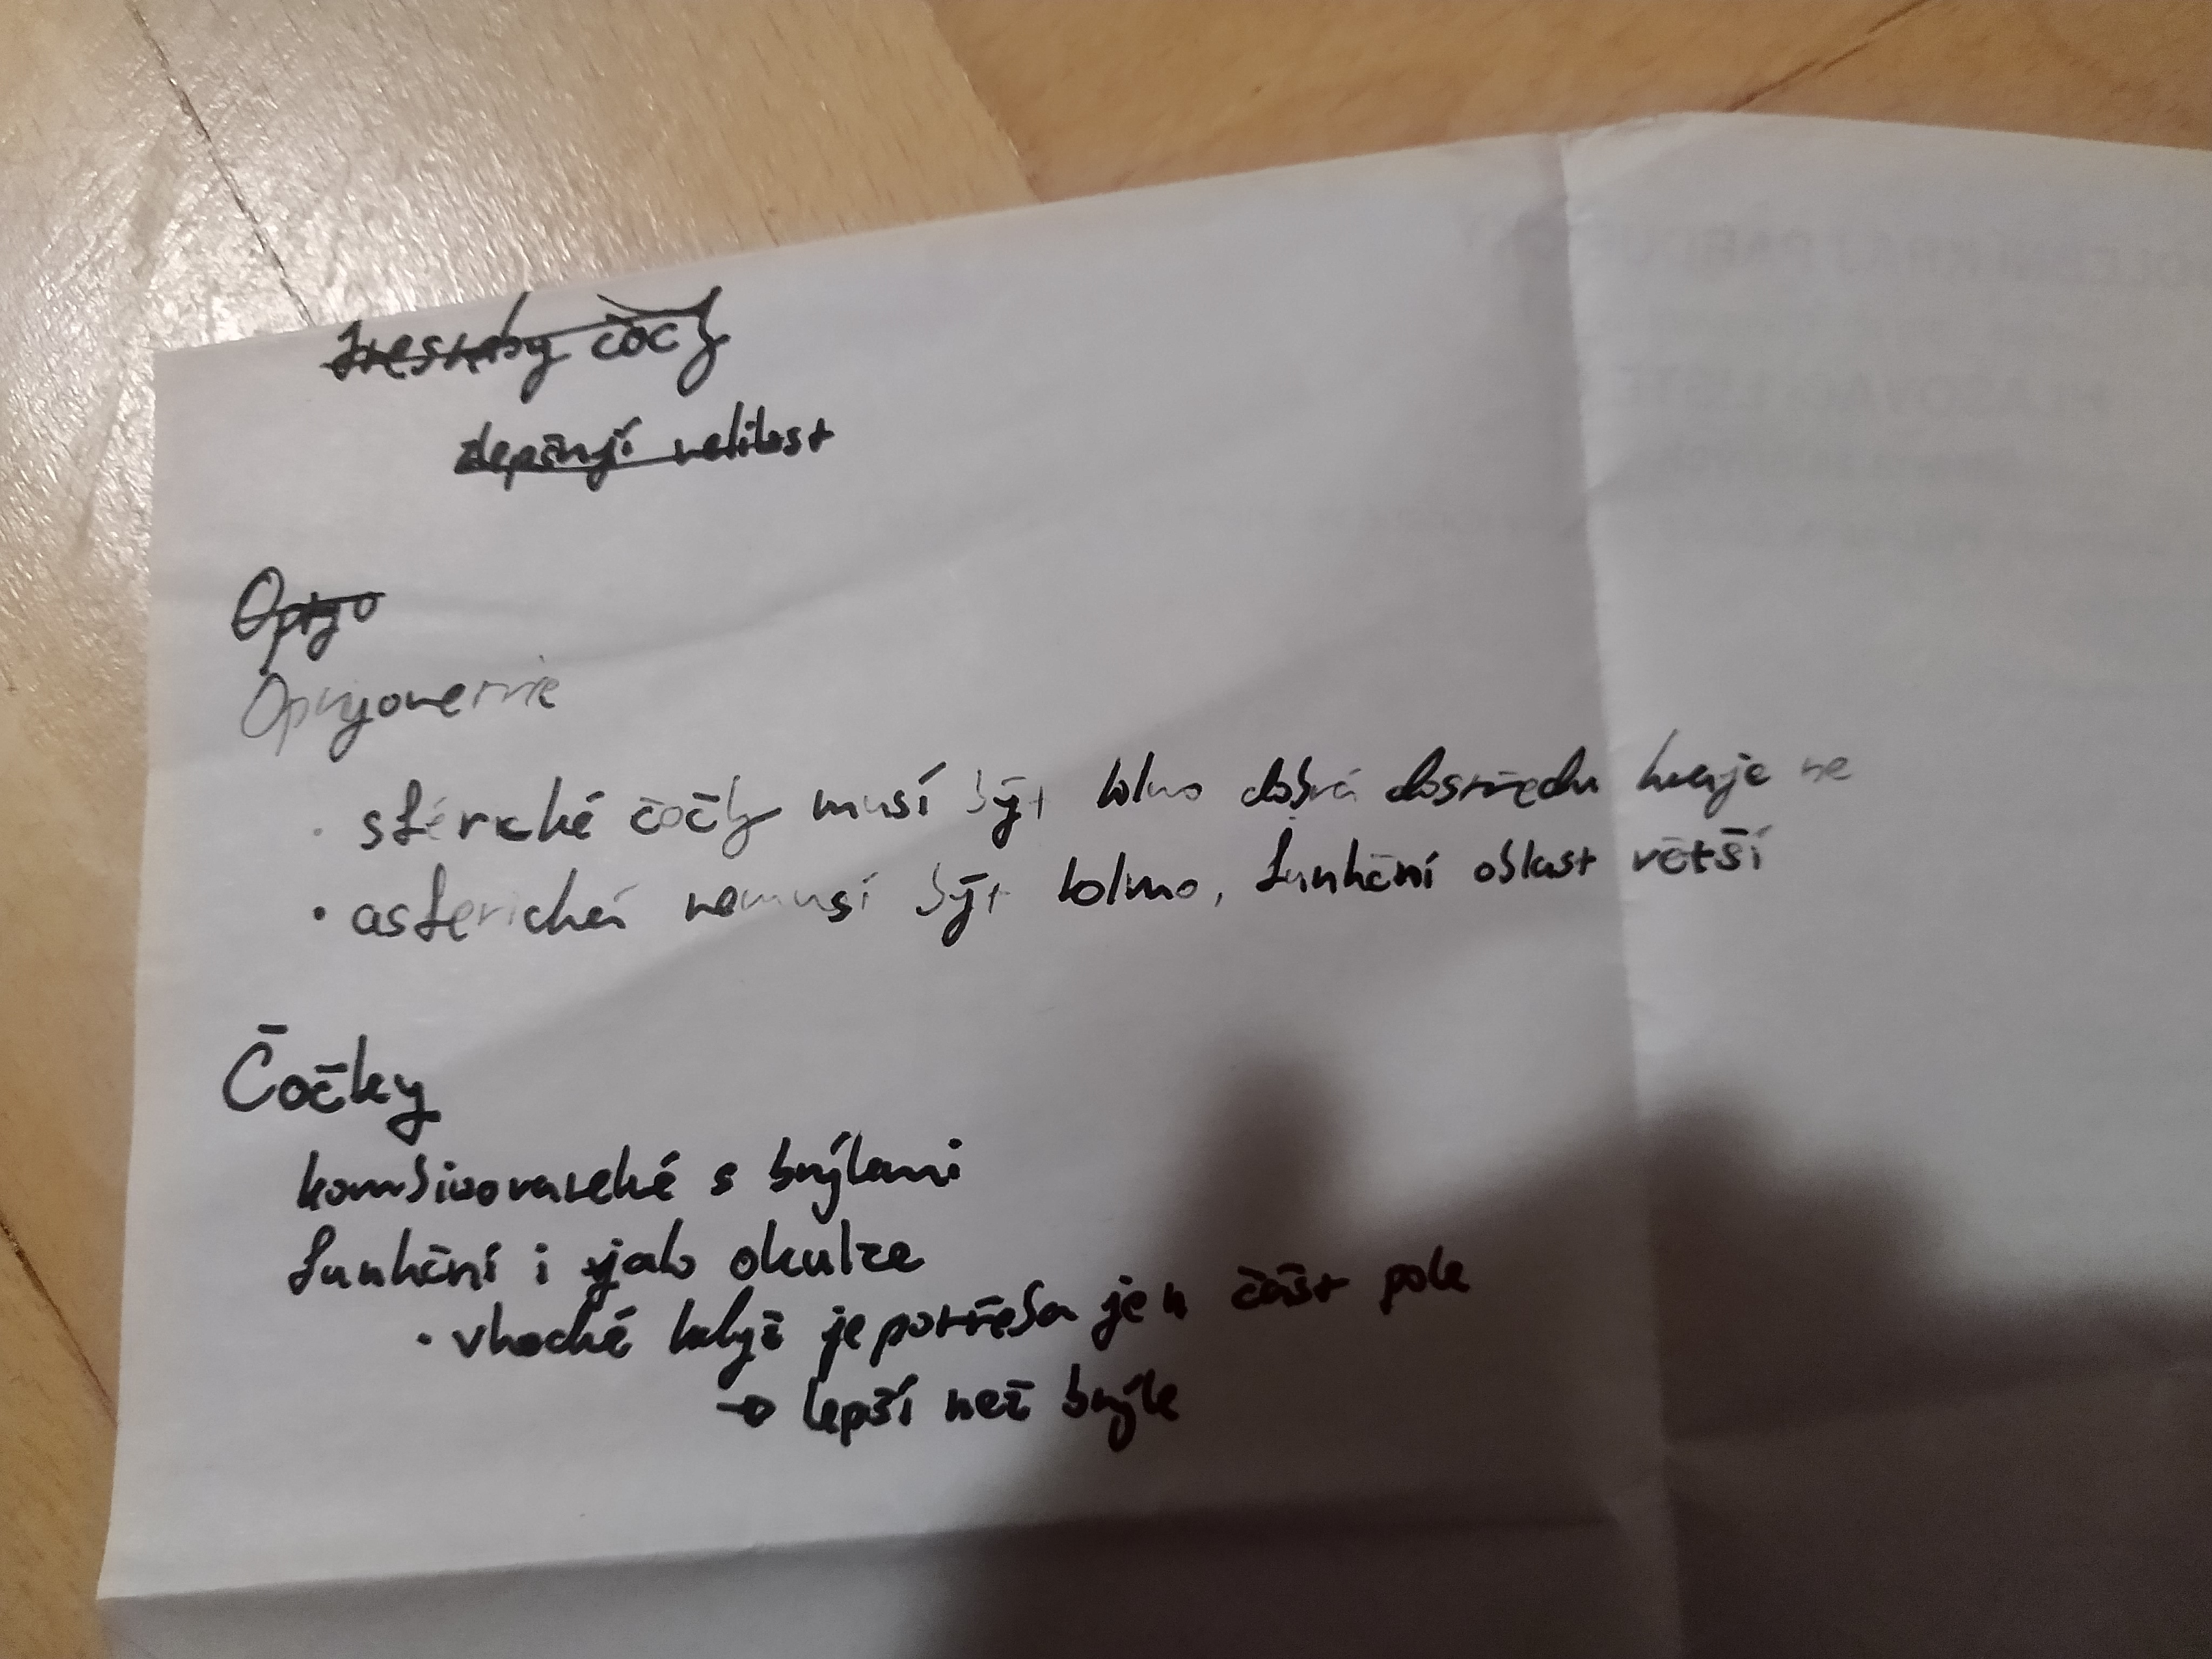 čočky
zlepšují velikost
Optyo
sférické čočky musí být kolmo dobrá dostředu kraje ne
asferické nemusí být kolmo, funkční oblast větší
Čočky
kombinovatelné s brýlemi
funkční i jako okulze
vhodné když je potřeba jen část pole
→ lepší než brýle